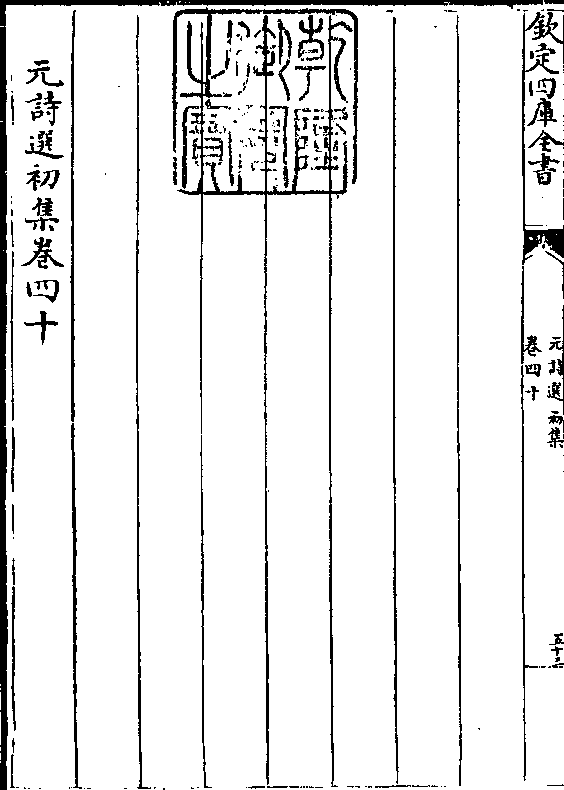 欽定四庫全書
元詩選初集
卷四十
五十三
乾隆御覽之寶
元詩選初集卷四十